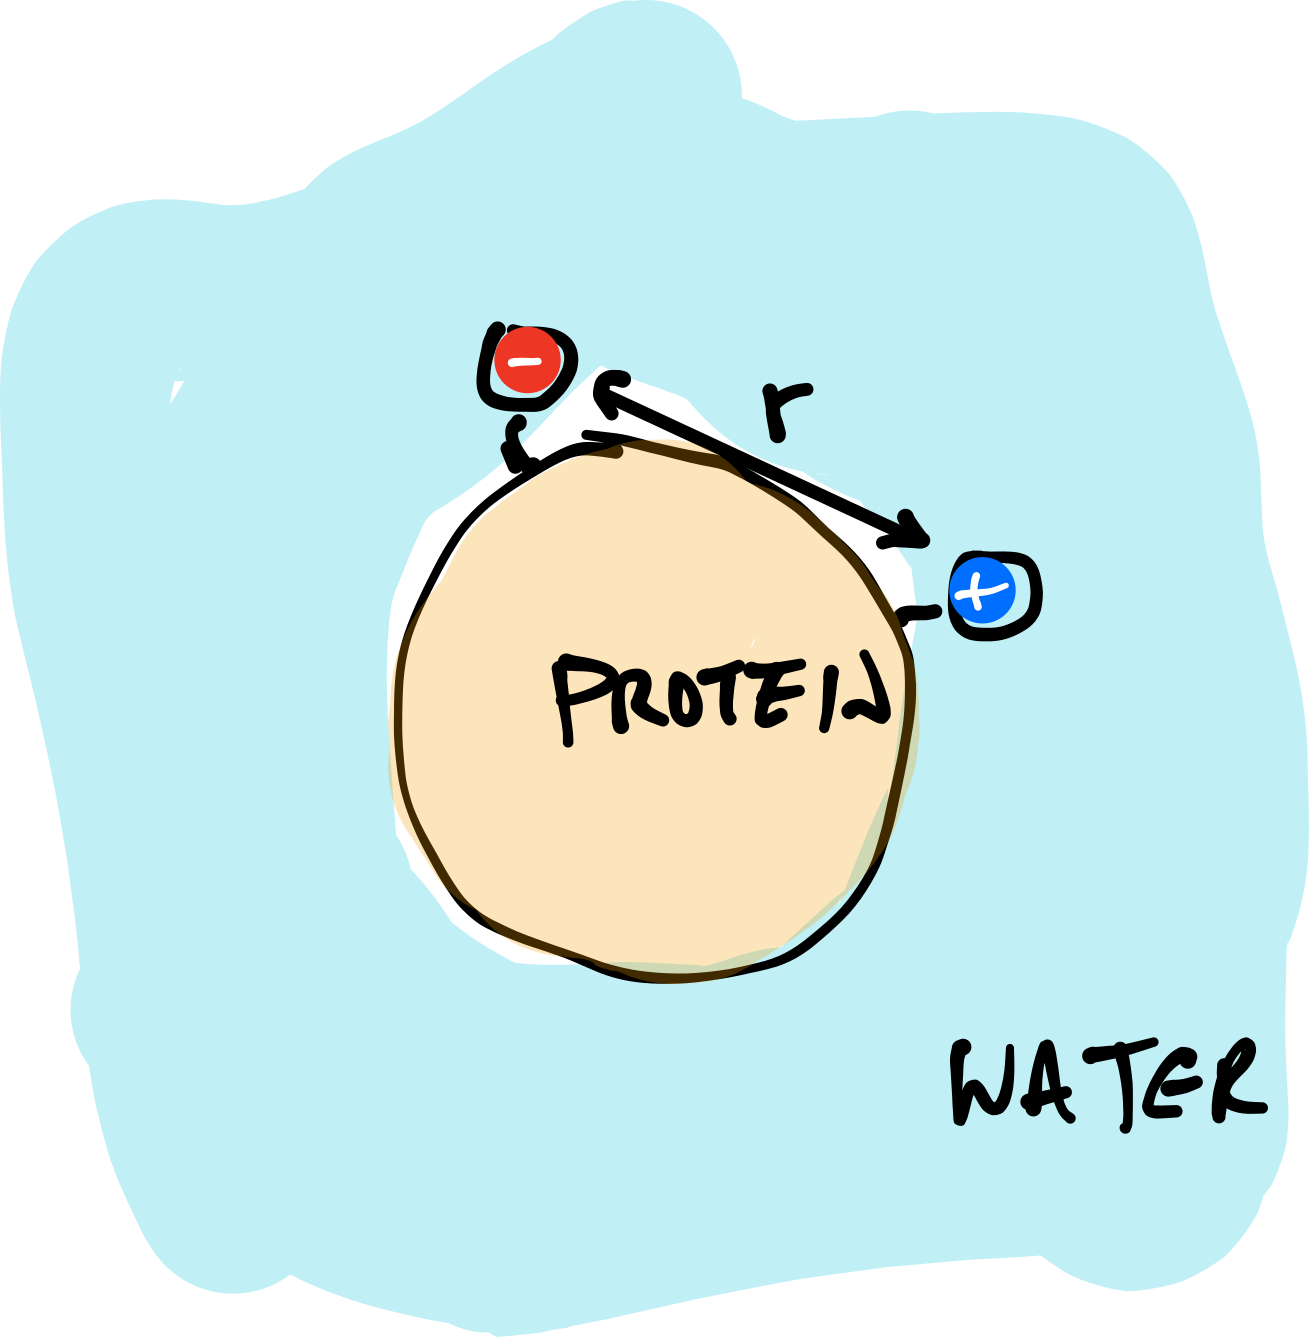 -
r
+
PROTEIN
WATER